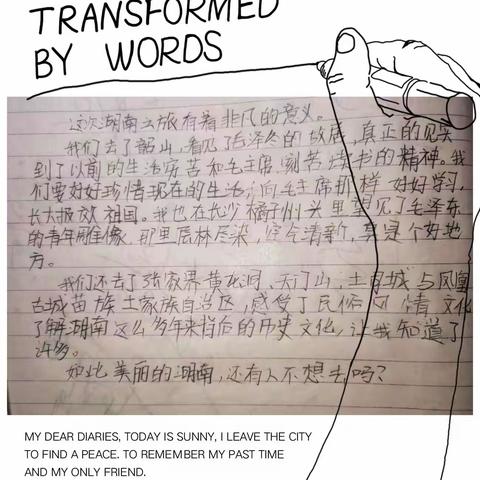 TRANSFORMED
BY WORDS
这次湖南之旅有着非凡的意义。
我们去了韶山，看见了毛泽东的故居，真正的见识
到了以前的生活穷苦和毛主席刻苦读书的精神。我
们要好好珍惜现在的生活，向毛主席那样好好学习，
长大报效祖国。我也在长沙橘子州头里望见了毛泽东
的青年雕像，那里层林尽染，空气清新，真是个好地
方。
我们还去了张家界黄龙洞、天门山、土司城与凤凰
古城苗族土家族自治区，感受了民俗风情，文化
了解湖南这么多年来背后的历史文化，让我知道了
许多。
如此美丽的湖南，还有人不想去吗？
MY DEAR DIARIES, TODAY IS SUNNY, I LEAVE THE CITY
TO FIND A PEACE. TO REMEMBER MY PAST TIME
AND MY ONLY FRIEND.